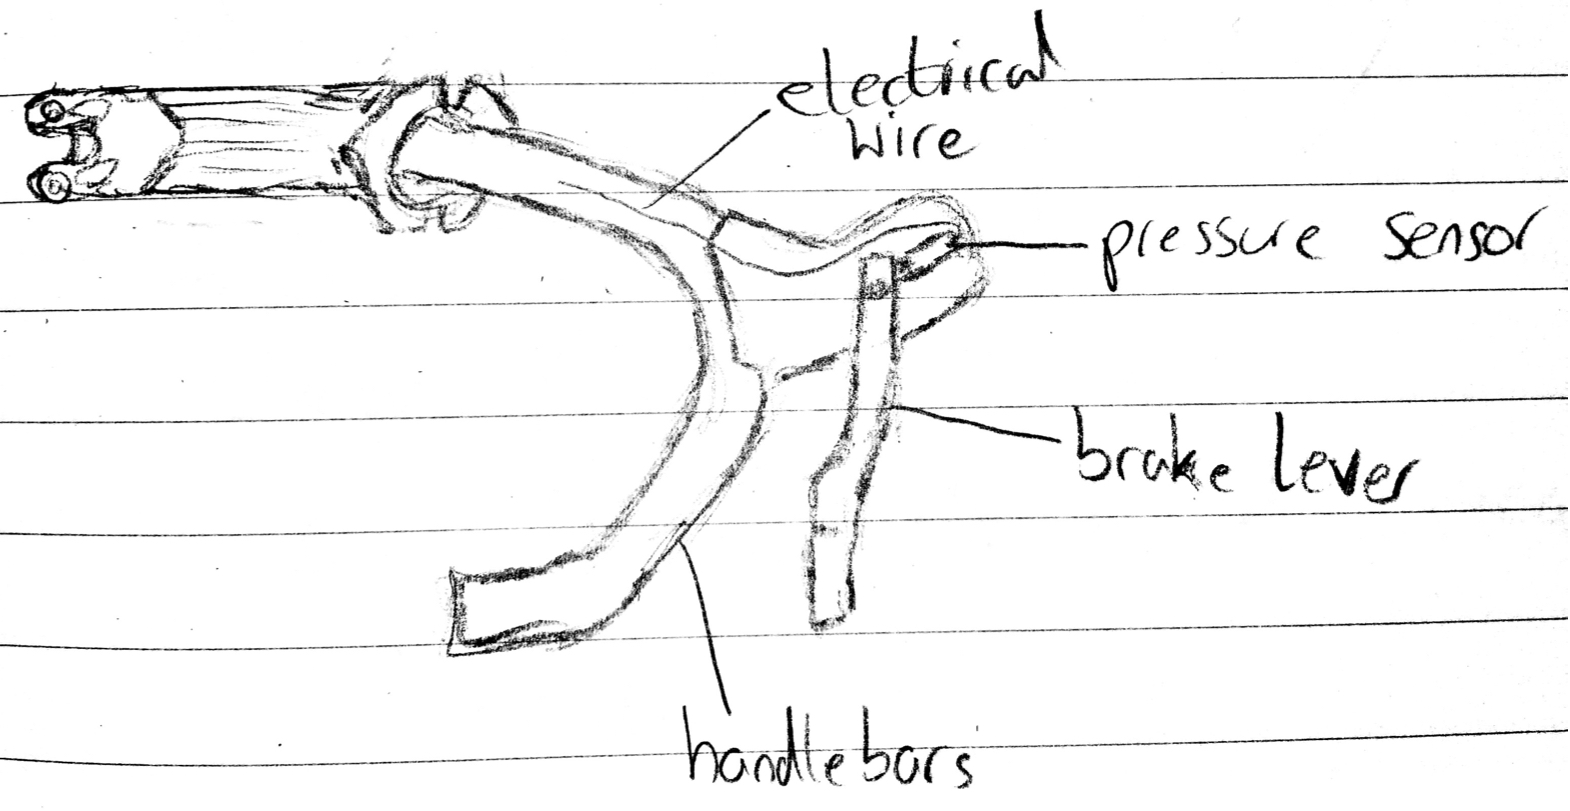 electrical
wire
pressure sensor
brake lever
handlebars